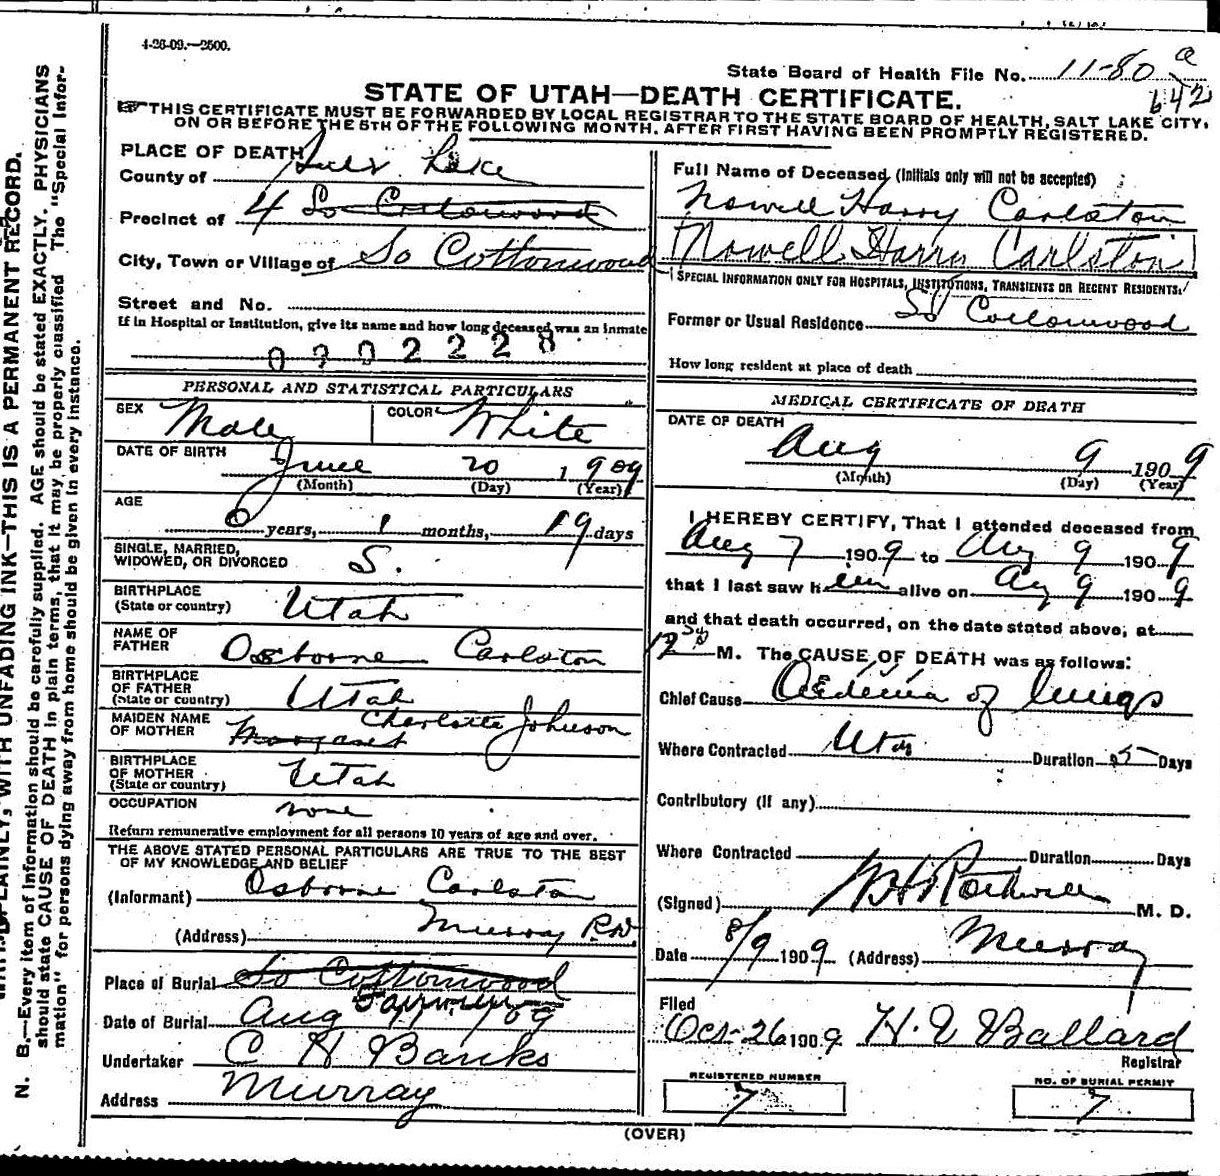 4-26-09.—2500.
State Board of Health File No. 11-80 a
642
STATE OF UTAH—DEATH CERTIFICATE.
THIS CERTIFICATE MUST BE FORWARDED BY LOCAL REGISTRAR TO THE STATE BOARD OF HEALTH, SALT LAKE CITY,
ON OR BEFORE THE 5TH OF THE FOLLOWING MONTH, AFTER FIRST HAVING BEEN PROMPTLY REGISTERED.
PLACE OF DEATH
County of Salt Lake
Precinct of 4 So Cottonwood
City, Town or Village of So Cottonwood
Street and No.
If in Hospital or Institution, give its name and how long deceased was an inmate
0702228
PERSONAL AND STATISTICAL PARTICULARS
SEX Male COLOR White
DATE OF BIRTH June 20 1909
(Month) (Day) (Year)
AGE 0 years, 1 months, 19 days
SINGLE, MARRIED,
WIDOWED, OR DIVORCED S.
BIRTHPLACE
(State or country) Utah
NAME OF
FATHER Osborne Carlston
BIRTHPLACE
OF FATHER
(State or country) Utah
MAIDEN NAME
OF MOTHER Margaret Charlotte Johnson
BIRTHPLACE
OF MOTHER
(State or country) Utah
OCCUPATION none
Return remunerative employment for all persons 10 years of age and over.
THE ABOVE STATED PERSONAL PARTICULARS ARE TRUE TO THE BEST
OF MY KNOWLEDGE AND BELIEF
(Informant) Osborne Carlston
(Address) Murray
Place of Burial So Cottonwood
Date of Burial Aug 09
Undertaker C H Banks
Address Murray
Full Name of Deceased (Initials only will not be accepted)
Nowell Harry Carlston
Nowell Harry Carlston
SPECIAL INFORMATION ONLY FOR HOSPITALS, INSTITUTIONS, TRANSIENTS OR RECENT RESIDENTS.
Former or Usual Residence So Cottonwood
How long resident at place of death
MEDICAL CERTIFICATE OF DEATH
DATE OF DEATH
Aug 9 1909
(Month) (Day) (Year)
I HEREBY CERTIFY, That I attended deceased from
Aug 7 1909 to Aug 9 1909
that I last saw him alive on Aug 9 1909
and that death occurred, on the date stated above, at
12 M. The CAUSE OF DEATH was as follows:
Chief Cause Oedema of lungs
Where Contracted Utah Duration 5 Days
Contributory (if any)
Where Contracted Duration Days
(Signed) Rothwell M. D.
Date 8/9 1909 (Address) Murray
Filed
Oct 26 1909 Ballard
Registrar
REGISTERED NUMBER
7
NO. OF BURIAL PERMIT
7
(OVER)
PLAINLY, WITH UNFADING INK—THIS IS A PERMANENT RECORD.
N. B.—Every item of information should be carefully supplied. AGE should be stated EXACTLY. PHYSICIANS
should state CAUSE OF DEATH in plain terms, that it may be properly classified. The "Special Infor-
mation" for persons dying away from home should be given in every instance.